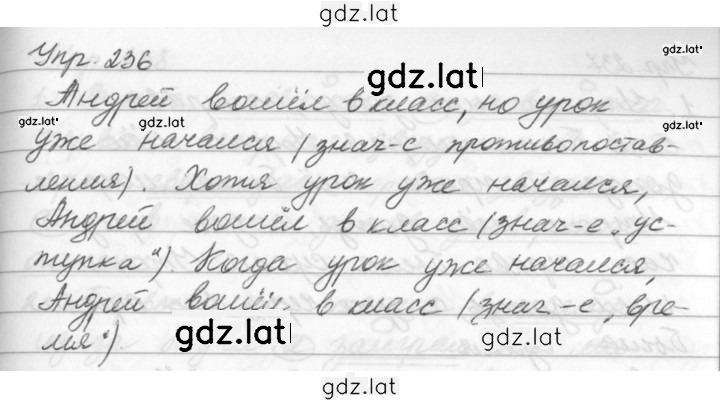 gdz.lat
Упр. 236
gdz.lat
gdz.lat
Андрей вошёл в класс, но урок
gdz.lat gdz.lat gdz.lat
уже начался (знач-е противопостав-
ления). Хотя урок уже начался,
Андрей вошёл в класс (знач-е „ус-
тупка“). Когда урок уже начался,
Андрей вошёл в класс (знач-е „вре-
мя“).
gdz.lat gdz.lat
gdz.lat